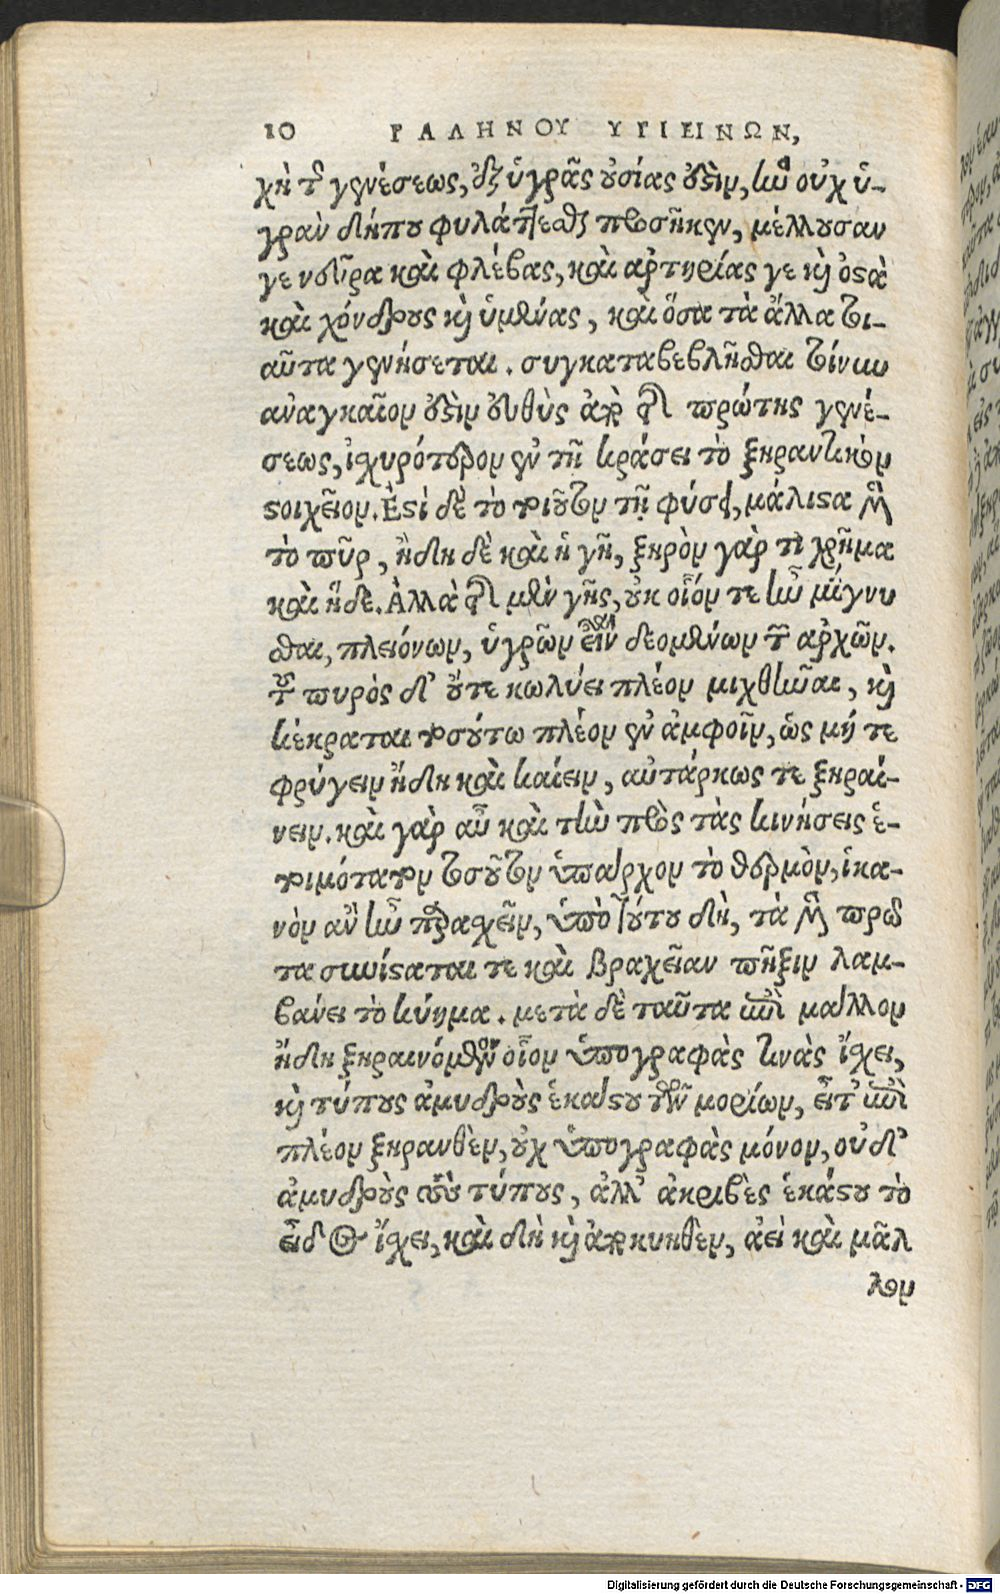 10 ΓΑΛΗΝΟΥ ΥΓΙΕΙΝΩΝ,
χὴ τῆς γενέσεως, ἐξ ὑγρᾶς οὐσίας ἐστὶν, ἣν οὐχ ὑ-
γρὰν δήπου φυλάττεσθαι προσῆκεν, μέλλουσαν
γε νεῦρα καὶ φλέβας, καὶ ἀρτηρίας γε καὶ ὀστᾶ
καὶ χόνδρους καὶ ὑμένας, καὶ ὅσα τὰ ἄλλα τοι-
αῦτα γενήσεται. συγκαταβεβλῆσθαι τοίνυν
ἀναγκαῖον ἐστὶν εὐθὺς ἀπὸ τῆς πρώτης γενέ-
σεως, ἰσχυρότερον ἐν τῇ κράσει τὸ ξηραντικὸν
στοιχεῖον. Ἐστὶ δὲ τὸ τοιοῦτον τῇ φύσει, μάλιστα μὲν
τὸ πῦρ, ἤδη δὲ καὶ ἡ γῆ, ξηρὸν γάρ τι χρῆμα
καὶ ἥδε. Ἀλλὰ τῆς μὲν γῆς, οὐκ οἷόν τε ἦν μίγνυ
σθαι, πλειόνων, ὑγρῶν εἶναι δεομένων τῶν ἀρχῶν.
τοῦ πυρὸς δ' οὔτε κωλύει πλέον μιχθῆναι, καὶ
κέκραται τοσούτῳ πλέον ἐν ἀμφοῖν, ὡς μή τε
φρύγειν ἤδη καὶ καίειν, αὐτάρκως τε ξηραί-
νειν. καὶ γὰρ αὖ καὶ τὴν πρὸς τὰς κινήσεις ἑ-
τοιμότατον τοσοῦτον ὑπάρχον τὸ θερμὸν, ἱκα-
νὸν ἂν ἦν παρασχεῖν, ὑπὸ τούτου δὴ, τὰ μὲν πρῶ
τα συνίσταται τε καὶ βραχεῖαν πῆξιν λαμ-
βάνει τὸ κύημα. μετὰ δὲ ταῦτα ἐπὶ μᾶλλον
ἤδη ξηραινόμενον οἷον ὑπογραφὰς τινὰς ἴσχει,
καὶ τύπους ἀμυδροὺς ἑκάστου τῶν μορίων, εἶτ' ἐπὶ
πλέον ξηρανθὲν, οὐχ ὑπογραφὰς μόνον, οὐδ'
ἀμυδροὺς τοὺς τύπους, ἀλλ' ἀκριβὲς ἑκάστου τὸ
εἶδος ἴσχει, καὶ δὴ καὶ ἀποκυηθὲν, ἀεὶ καὶ μᾶλ
λον
Digitalisierung gefördert durch die Deutsche Forschungsgemeinschaft - DFG